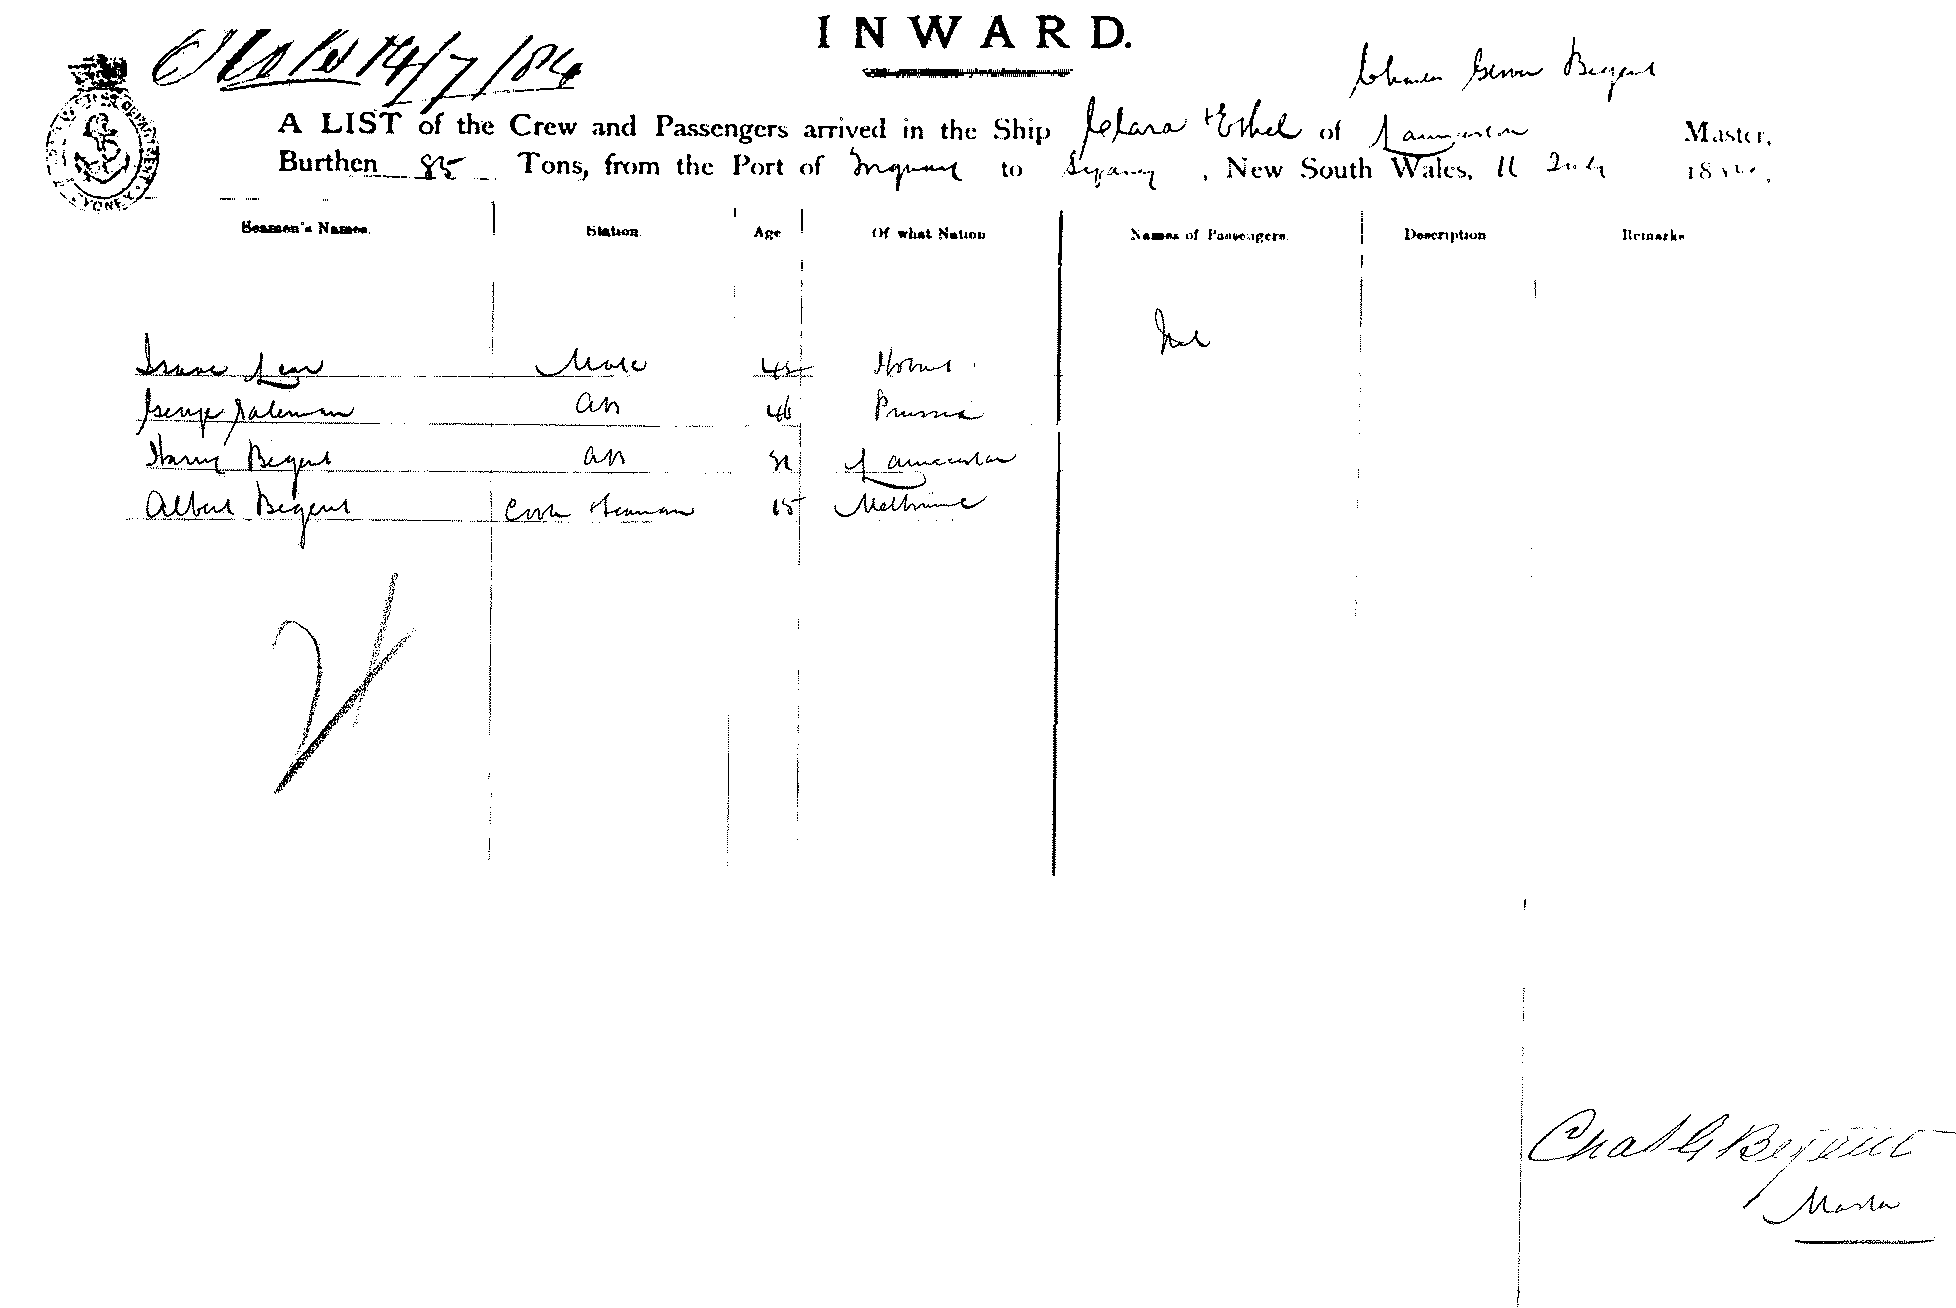 INWARD.
14/7/86
Charles George Begent
A LIST of the Crew and Passengers arrived in the Ship Clara & Ethel of Launceston Master,
Burthen 85 Tons, from the Port of Torquay to Sydney, New South Wales, 11 July 18
Seamen's Names. Station Age Of what Nation Names of Passengers. Description Remarks
Nil
Isaac Lear Mate 45 Hobart
George AB 46 Prussia
Harry Begent AB Launceston
Albert Begent Cook & Seaman 15 Melbourne
Chas G Begent
Master